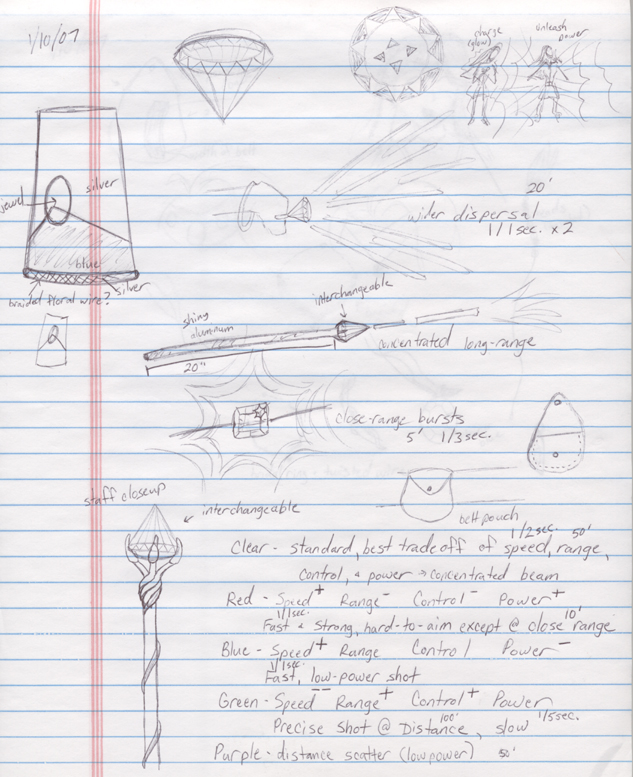 1/10/07
charge
(glow)
unleash
power
jewel
silver
blue
silver
braided floral wire?
20'
wider dispersal
1/1sec. x2
interchangeable
shiny
aluminum
concentrated long-range
20"
close-range bursts
5' 1/3sec.
belt pouch
staff closeup
interchangeable
1/2sec. 50'
Clear - standard, best tradeoff of speed, range,
control, & power → concentrated beam
Red - Speed+ Range- Control- Power+
1/1sec. 10'
Fast & Strong, hard-to-aim except @ close range
Blue - Speed+ Range Control Power-
1/1sec.
Fast, low-power shot
Green - Speed-- Range+ Control+ Power
100' 1/5sec.
Precise shot @ Distance, slow
Purple - distance scatter (low power) 50'